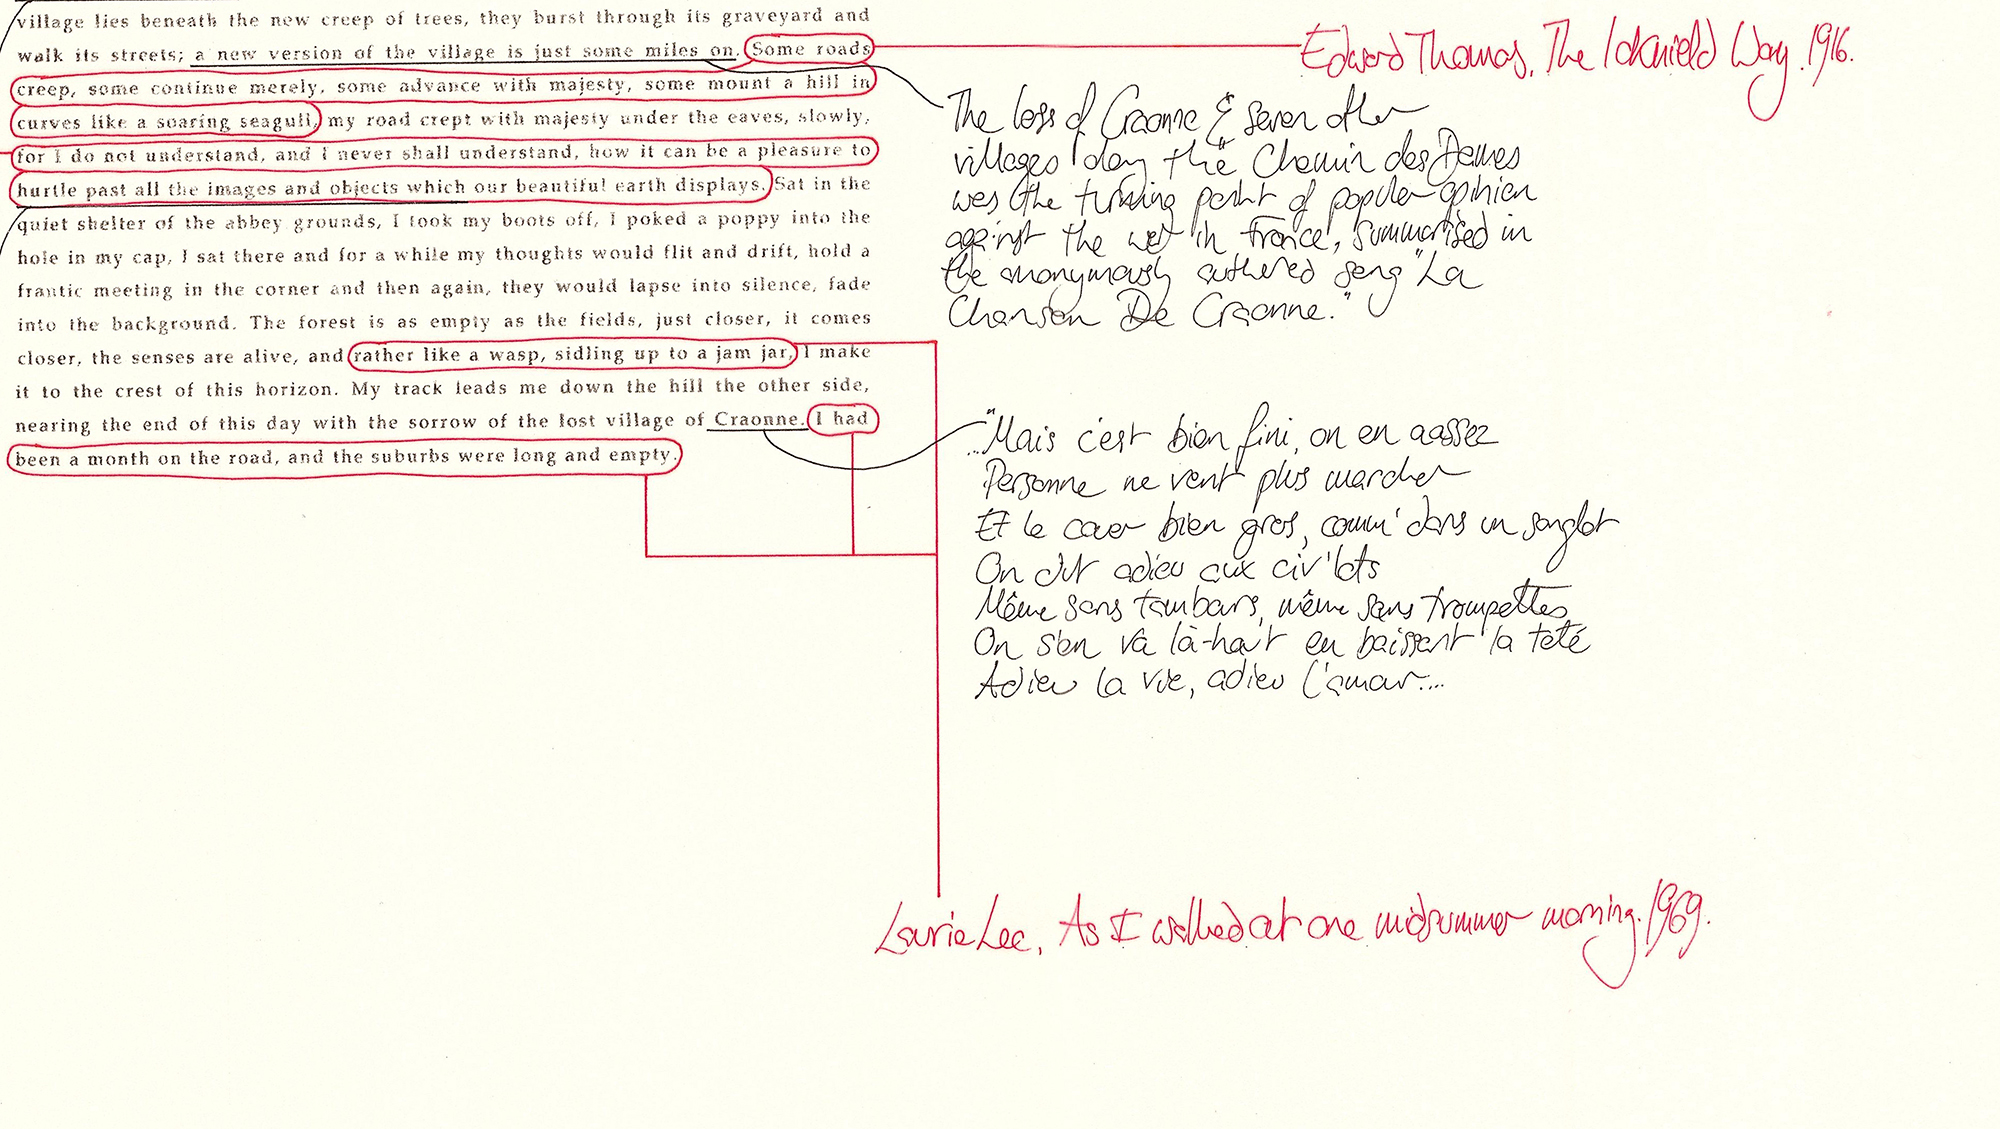 village lies beneath the new creep of trees, they burst through its graveyard and
walk its streets; a new version of the village is just some miles on. Some roads
creep, some continue merely, some advance with majesty, some mount a hill in
curves like a soaring seagull, my road crept with majesty under the eaves, slowly,
for I do not understand, and I never shall understand, how it can be a pleasure to
hurtle past all the images and objects which our beautiful earth displays. Sat in the
quiet shelter of the abbey grounds, I took my boots off, I poked a poppy into the
hole in my cap, I sat there and for a while my thoughts would flit and drift, hold a
frantic meeting in the corner and then again, they would lapse into silence, fade
into the background. The forest is as empty as the fields, just closer, it comes
closer, the senses are alive, and rather like a wasp, sidling up to a jam jar, I make
it to the crest of this horizon. My track leads me down the hill the other side,
nearing the end of this day with the sorrow of the lost village of Craonne. I had
been a month on the road, and the suburbs were long and empty.
Edward Thomas, The Icknield Way. 1916.
The loss of Craonne & seven other
villages along the Chemin des Dames
was the turning point of popular opinion
against the war in France, summarised in
the anonymously authored song "La
Chanson De Craonne."
"...Mais c'est bien fini, on en a assez
Personne ne veut plus marcher
Et le cœur bien gros, comm' dans un sanglot
On dit adieu aux civ'lots
Même sans tambours, même sans trompettes
On s'en va là-haut en baissant la tête
Adieu la vie, adieu l'amour...
Laurie Lee, As I walked out one midsummer morning. 1969.